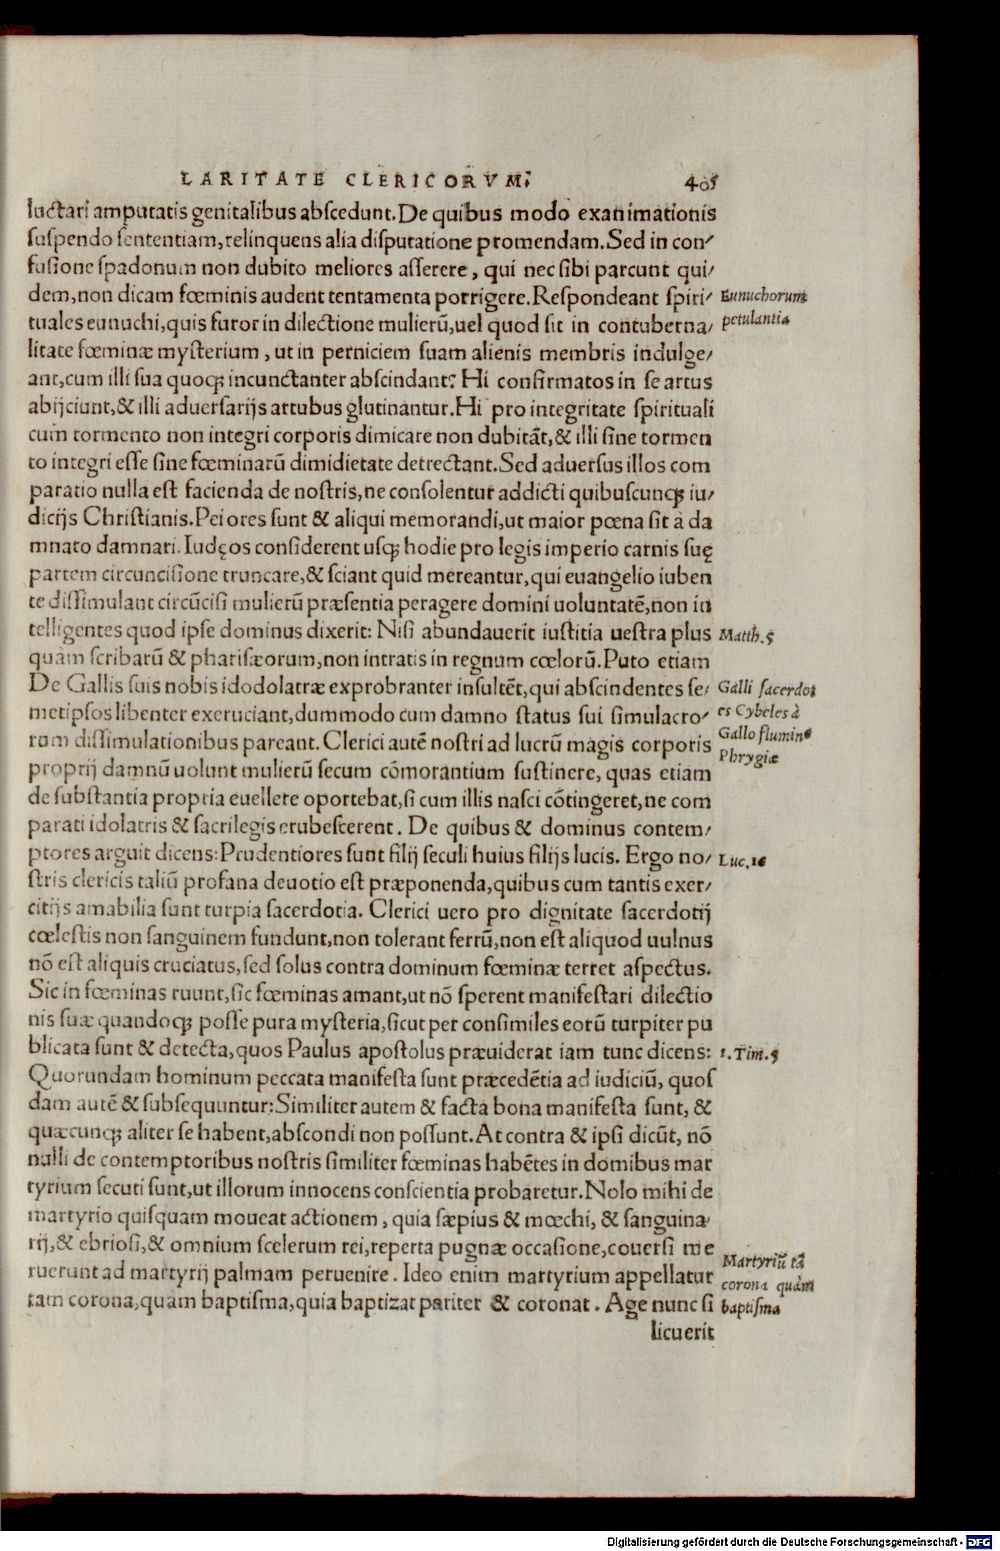 LARITATE CLERICORVM. 405
luctari amputatis genitalibus abscedunt. De quibus modo exanimationis
suspendo sententiam, relinquens alia disputatione promendam. Sed in con/
fusione spadonum non dubito meliores asserere, qui nec sibi parcunt qui/
dem, non dicam fœminis audent tentamenta porrigere. Respondeant spiri/
Eunuchorum
tuales eunuchi, quis furor in dilectione mulierū, uel quod sit in contuberna/
petulantia
litate fœminæ mysterium, ut in perniciem suam alienis membris indulge/
ant, cum illi sua quoqꝫ incunctanter abscindant? Hi confirmatos in se artus
abijciunt, & illi aduersarijs artubus glutinantur. Hi pro integritate spirituali
cum tormento non integri corporis dimicare non dubitāt, & illi sine tormen
to integri esse sine fœminarū dimidietate detrectant. Sed aduersus illos com
paratio nulla est facienda de nostris, ne consolentur addicti quibuscunqꝫ iu/
dicijs Christianis. Peiores sunt & aliqui memorandi, ut maior pœna sit à da
mnato damnari. Iudęos considerent usqꝫ hodie pro legis imperio carnis suę
partem circuncisione truncare, & sciant quid mereantur, qui euangelio iuben
te dissimulant circūcisi mulierū præsentia peragere domini uoluntatē, non in
telligentes quod ipse dominus dixerit: Nisi abundauerit iustitia uestra plus
Matth. 5
quàm scribarū & pharisæorum, non intratis in regnum cœlorū. Puto etiam
De Gallis suis nobis idodolatræ exprobranter insultēt, qui abscindentes se/
Galli sacerdot
metipsos libenter excruciant, dummodo cum damno status sui simulacro/
es Cybeles à
rum dissimulationibus pareant. Clerici autē nostri ad lucrū magis corporis
Gallo flumine
proprij damnū uolunt mulierū secum cōmorantium sustinere, quas etiam
Phrygiæ
de substantia propria euellere oportebat, si cum illis nasci cōtingeret, ne com
parati idolatris & sacrilegis erubescerent. De quibus & dominus contem/
ptores arguit dicens: Prudentiores sunt filij seculi huius filijs lucis. Ergo no/
Luc. 16
stris clericis taliū profana deuotio est præponenda, quibus cum tantis exer/
citijs amabilia sunt turpia sacerdotia. Clerici uero pro dignitate sacerdotij
cœlestis non sanguinem fundunt, non tolerant ferrū, non est aliquod uulnus
nō est aliquis cruciatus, sed solus contra dominum fœminæ terret aspectus.
Sic in fœminas ruunt, sic fœminas amant, ut nō sperent manifestari dilectio
nis suæ quandoqꝫ posse pura mysteria, sicut per consimiles eorū turpiter pu
blicata sunt & detecta, quos Paulus apostolus præuiderat iam tunc dicens:
1. Tim. 5
Quorundam hominum peccata manifesta sunt præcedētia ad iudiciū, quos
dam autē & subsequuntur: Similiter autem & facta bona manifesta sunt, &
quæcunqꝫ aliter se habent, abscondi non possunt. At contra & ipsi dicūt, nō
nulli de contemptoribus nostris similiter fœminas habētes in domibus mar
tyrium secuti sunt, ut illorum innocens conscientia probaretur. Nolo mihi de
martyrio quisquam moueat actionem, quia sæpius & mœchi, & sanguina/
rij, & ebriosi, & omnium scelerum rei, reperta pugnæ occasione, cōuersi me
Martyriū tā
ruerunt ad martyrij palmam peruenire. Ideo enim martyrium appellatur
corona quàm
tam corona, quam baptisma, quia baptizat pariter & coronat. Age nunc si
baptisma
licuerit
Digitalisierung gefördert durch die Deutsche Forschungsgemeinschaft - DFG